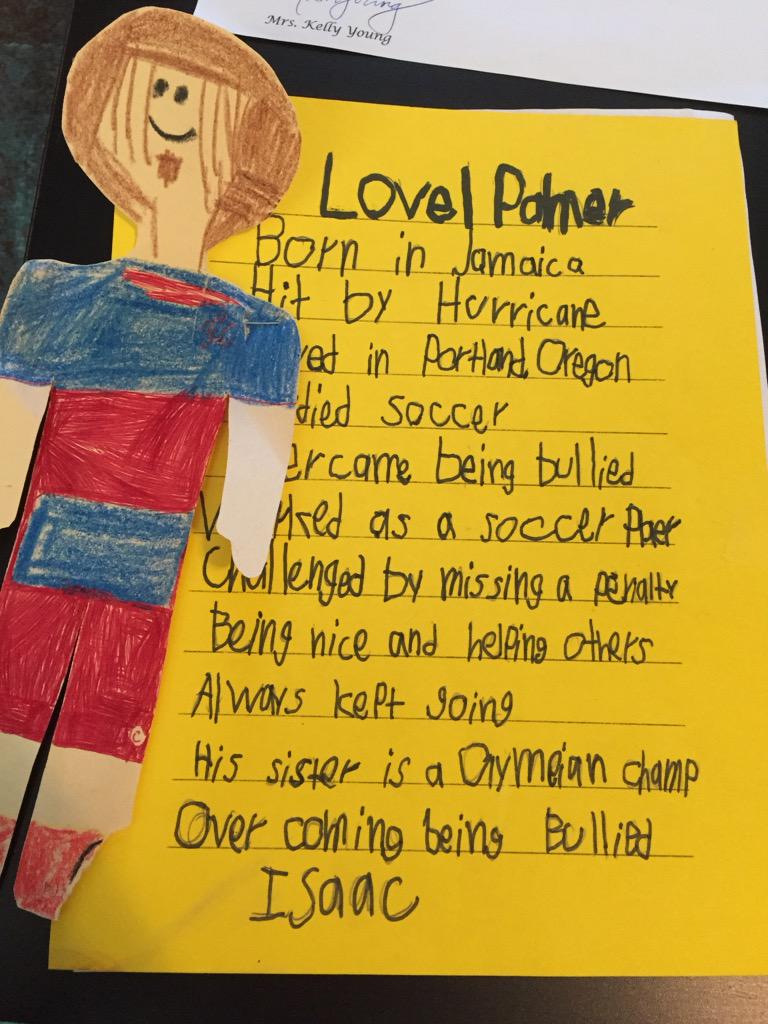 Mrs. Kelly Young
Lovel Palmer
Born in Jamaica
Hit by Hurricane
ved in Portland, Oregon
died soccer
ercame being bullied
as a soccer Paer
Challenged by missing a penalty
Being nice and helping others
Always kept going
His sister is a champ
Over coming being Bullied
Isaac
C